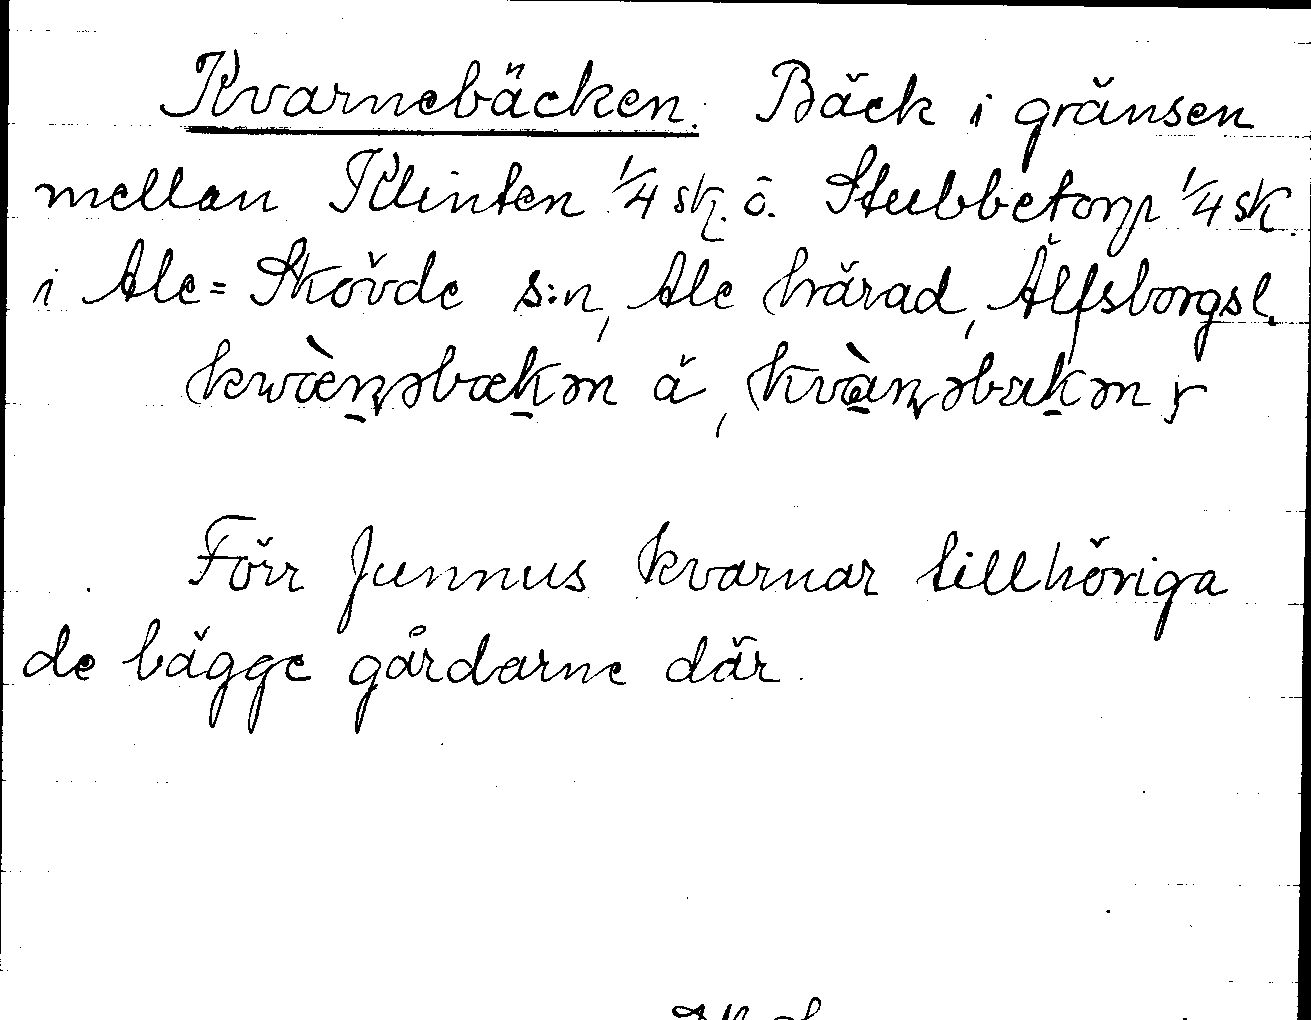 Kvarnebäcken. Bäck i gränsen
mellan Klinten 1/4 sk. o. Stubbetorp 1/4 sk.
i Ale=Skövde s:n, Ale härad, Älfsborgsl.
kwæ̀ɳəbækən ä, kvàɳəbækən y
Förr funnus kvarnar tillhöriga
de bägge gårdarne där.